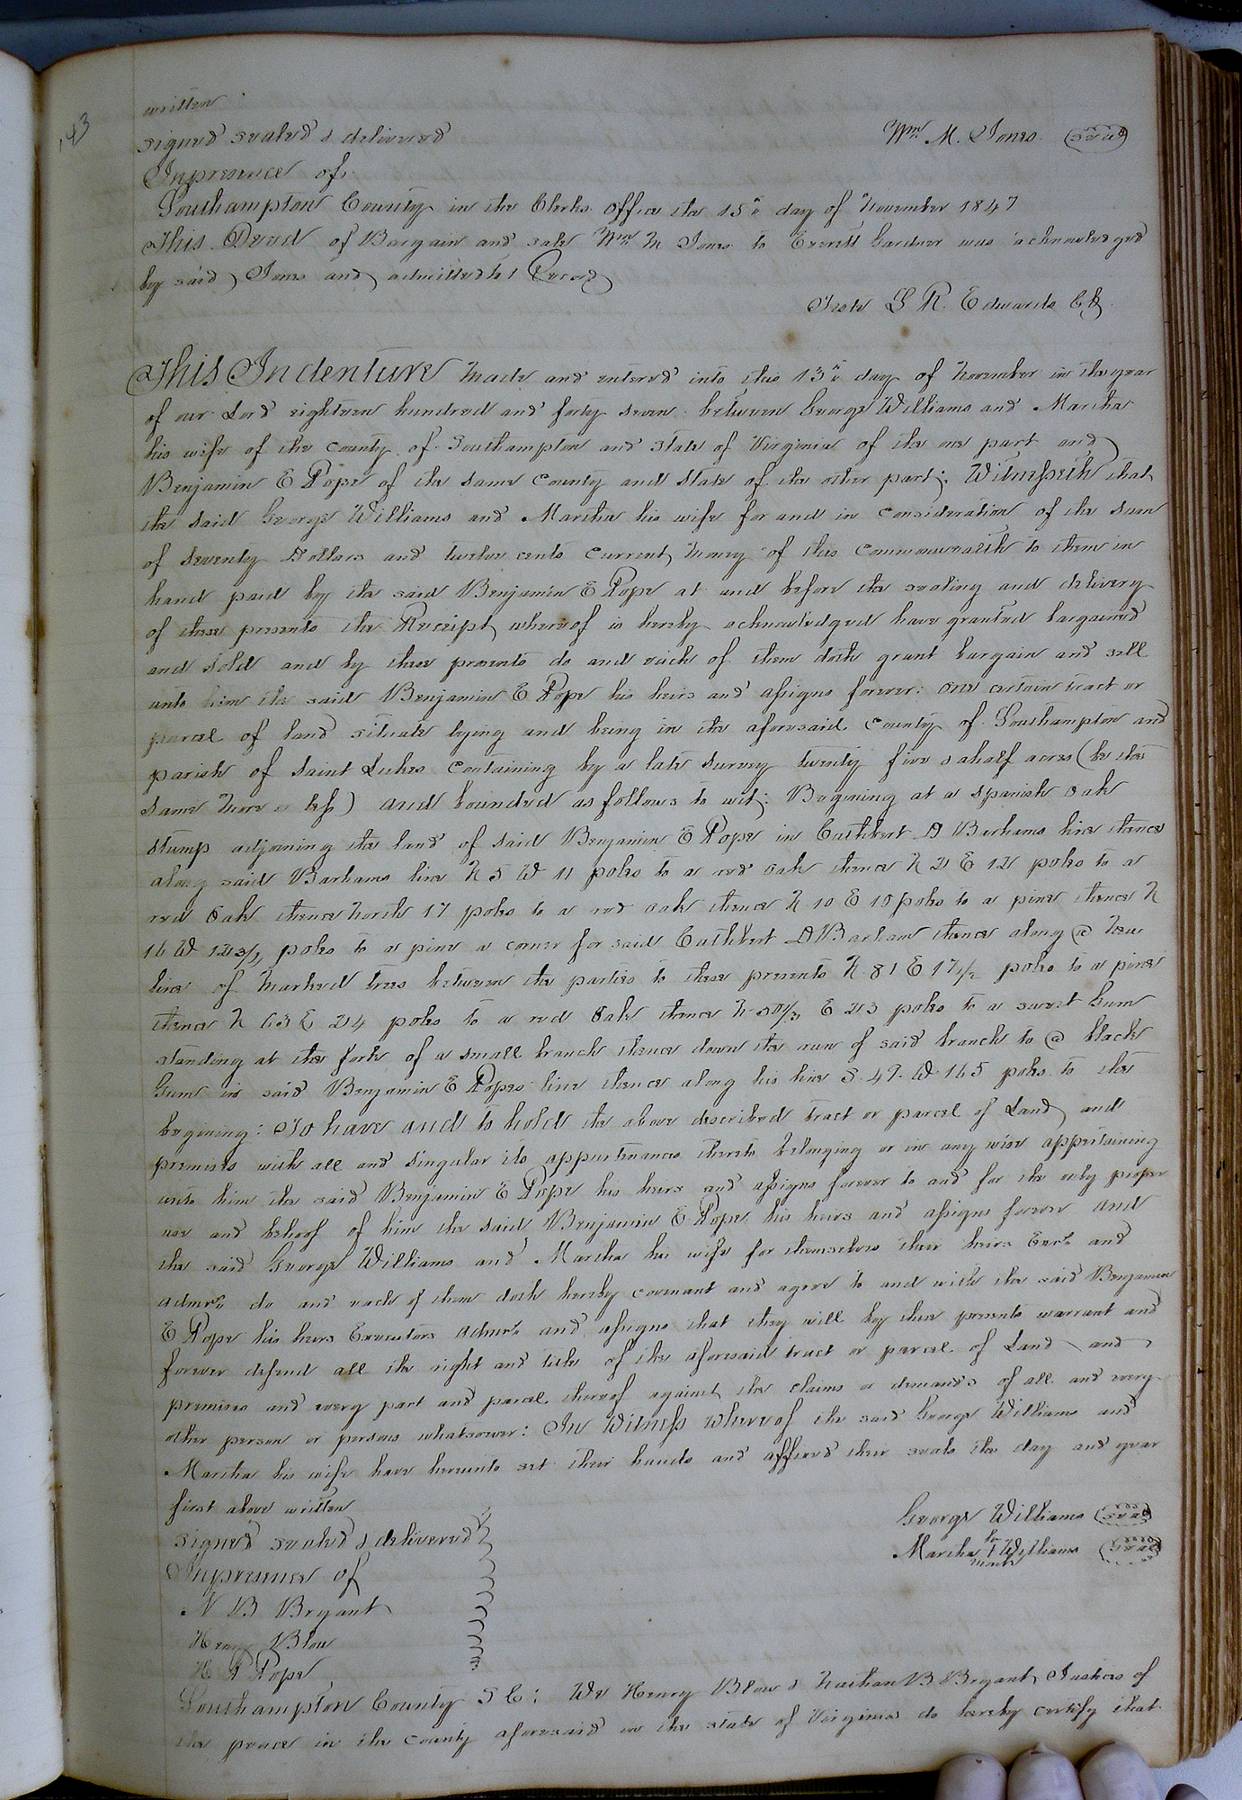 143
written
signed sealed & delivered Wm M. Jones (seal)
In presence of
Southampton County in the Clerks office the 15th day of November 1847
This Deed of Bargain and sale Wm M Jones to Everett Gardner was acknowledged
by said Jones and admitted to Record
Teste L R. Edwards Ck
This Indenture Made and entered into this 13th day of November in the year
of our Lord eighteen hundred and forty seven between George Williams and Martha
his wife of the county of Southampton and State of Virginia of the one part and
Benjamin E Pope of the same County and State of the other part; Witnesseth that
the said George Williams and Martha his wife for and in Consideration of the sum
of seventy Dollars and twelve cents Current Money of this Commonwealth to them in
hand paid by the said Benjamin E Pope at and before the sealing and delivery
of these presents the Receipt whereof is hereby acknowledged have granted bargained
and sold and by these presents do and each of them doth grant bargain and sell
unto him the said Benjamin E Pope his heirs and assigns forever: one certain tract or
parcel of land situate lying and being in the aforesaid County of Southampton and
parish of Saint Lukes Containing by a late survey twenty five & a half acres (be the
same more or less) and bounded as follows to wit: Begining at a spanish oak
stump adjoining the land of said Benjamin E Pope in Cuthbert D Barhams line thence
along said Barhams line N 5 W 11 poles to a red oak thence N 21 E 12 poles to a
red Oak thence North 17 poles to a red oak thence N 10 E 10 poles to a pine thence N
16 W poles to a pine a corner for said Cuthbert D Barham thence along a new
line of Marked trees between the parties to these presents N 81 E 17 1/2 poles to a pine
thence N 63 E 24 poles to a red Oak thence N E 23 poles to a sweet Gum
standing at the fork of a small branch thence down the run of said branch to a black
Gum in said Benjamin E Popes line thence along his line S. 49. W. 165 poles to the
begining: To have and to hold the above described tract or parcel of Land and
premises with all and singular its appurtenances thereto belonging or in any wise appertaining
unto him the said Benjamin E Pope his heirs and assigns forever to and for the only proper
use and behoof of him the said Benjamin E Pope his heirs and assigns forever and
the said George Williams and Martha his wife for themselves their heirs Exrs and
admrs do and each of them doth hereby covenant and agree to and with the said Benjamin
E Pope his heirs Executors admrs and assigns that they will by these presents warrant and
forever defend all the right and title of the aforesaid tract or parcel of Land and
premises and every part and parcel thereof against the claims or demands of all and every
other person or persons whatsoever: In Witness whereof the said George Williams and
Martha his wife have hereunto set their hands and affixed their seals the day and year
first above written
signed sealed & delivered George Williams (seal)
In presence of Martha her mark Williams (seal)
N B Bryant
Henry Blow
H P Pope
Southampton County S C: We Henry Blow & Nathan B. Bryant Justices of
the peace in the county aforesaid in the state of Virginia do hereby certify that